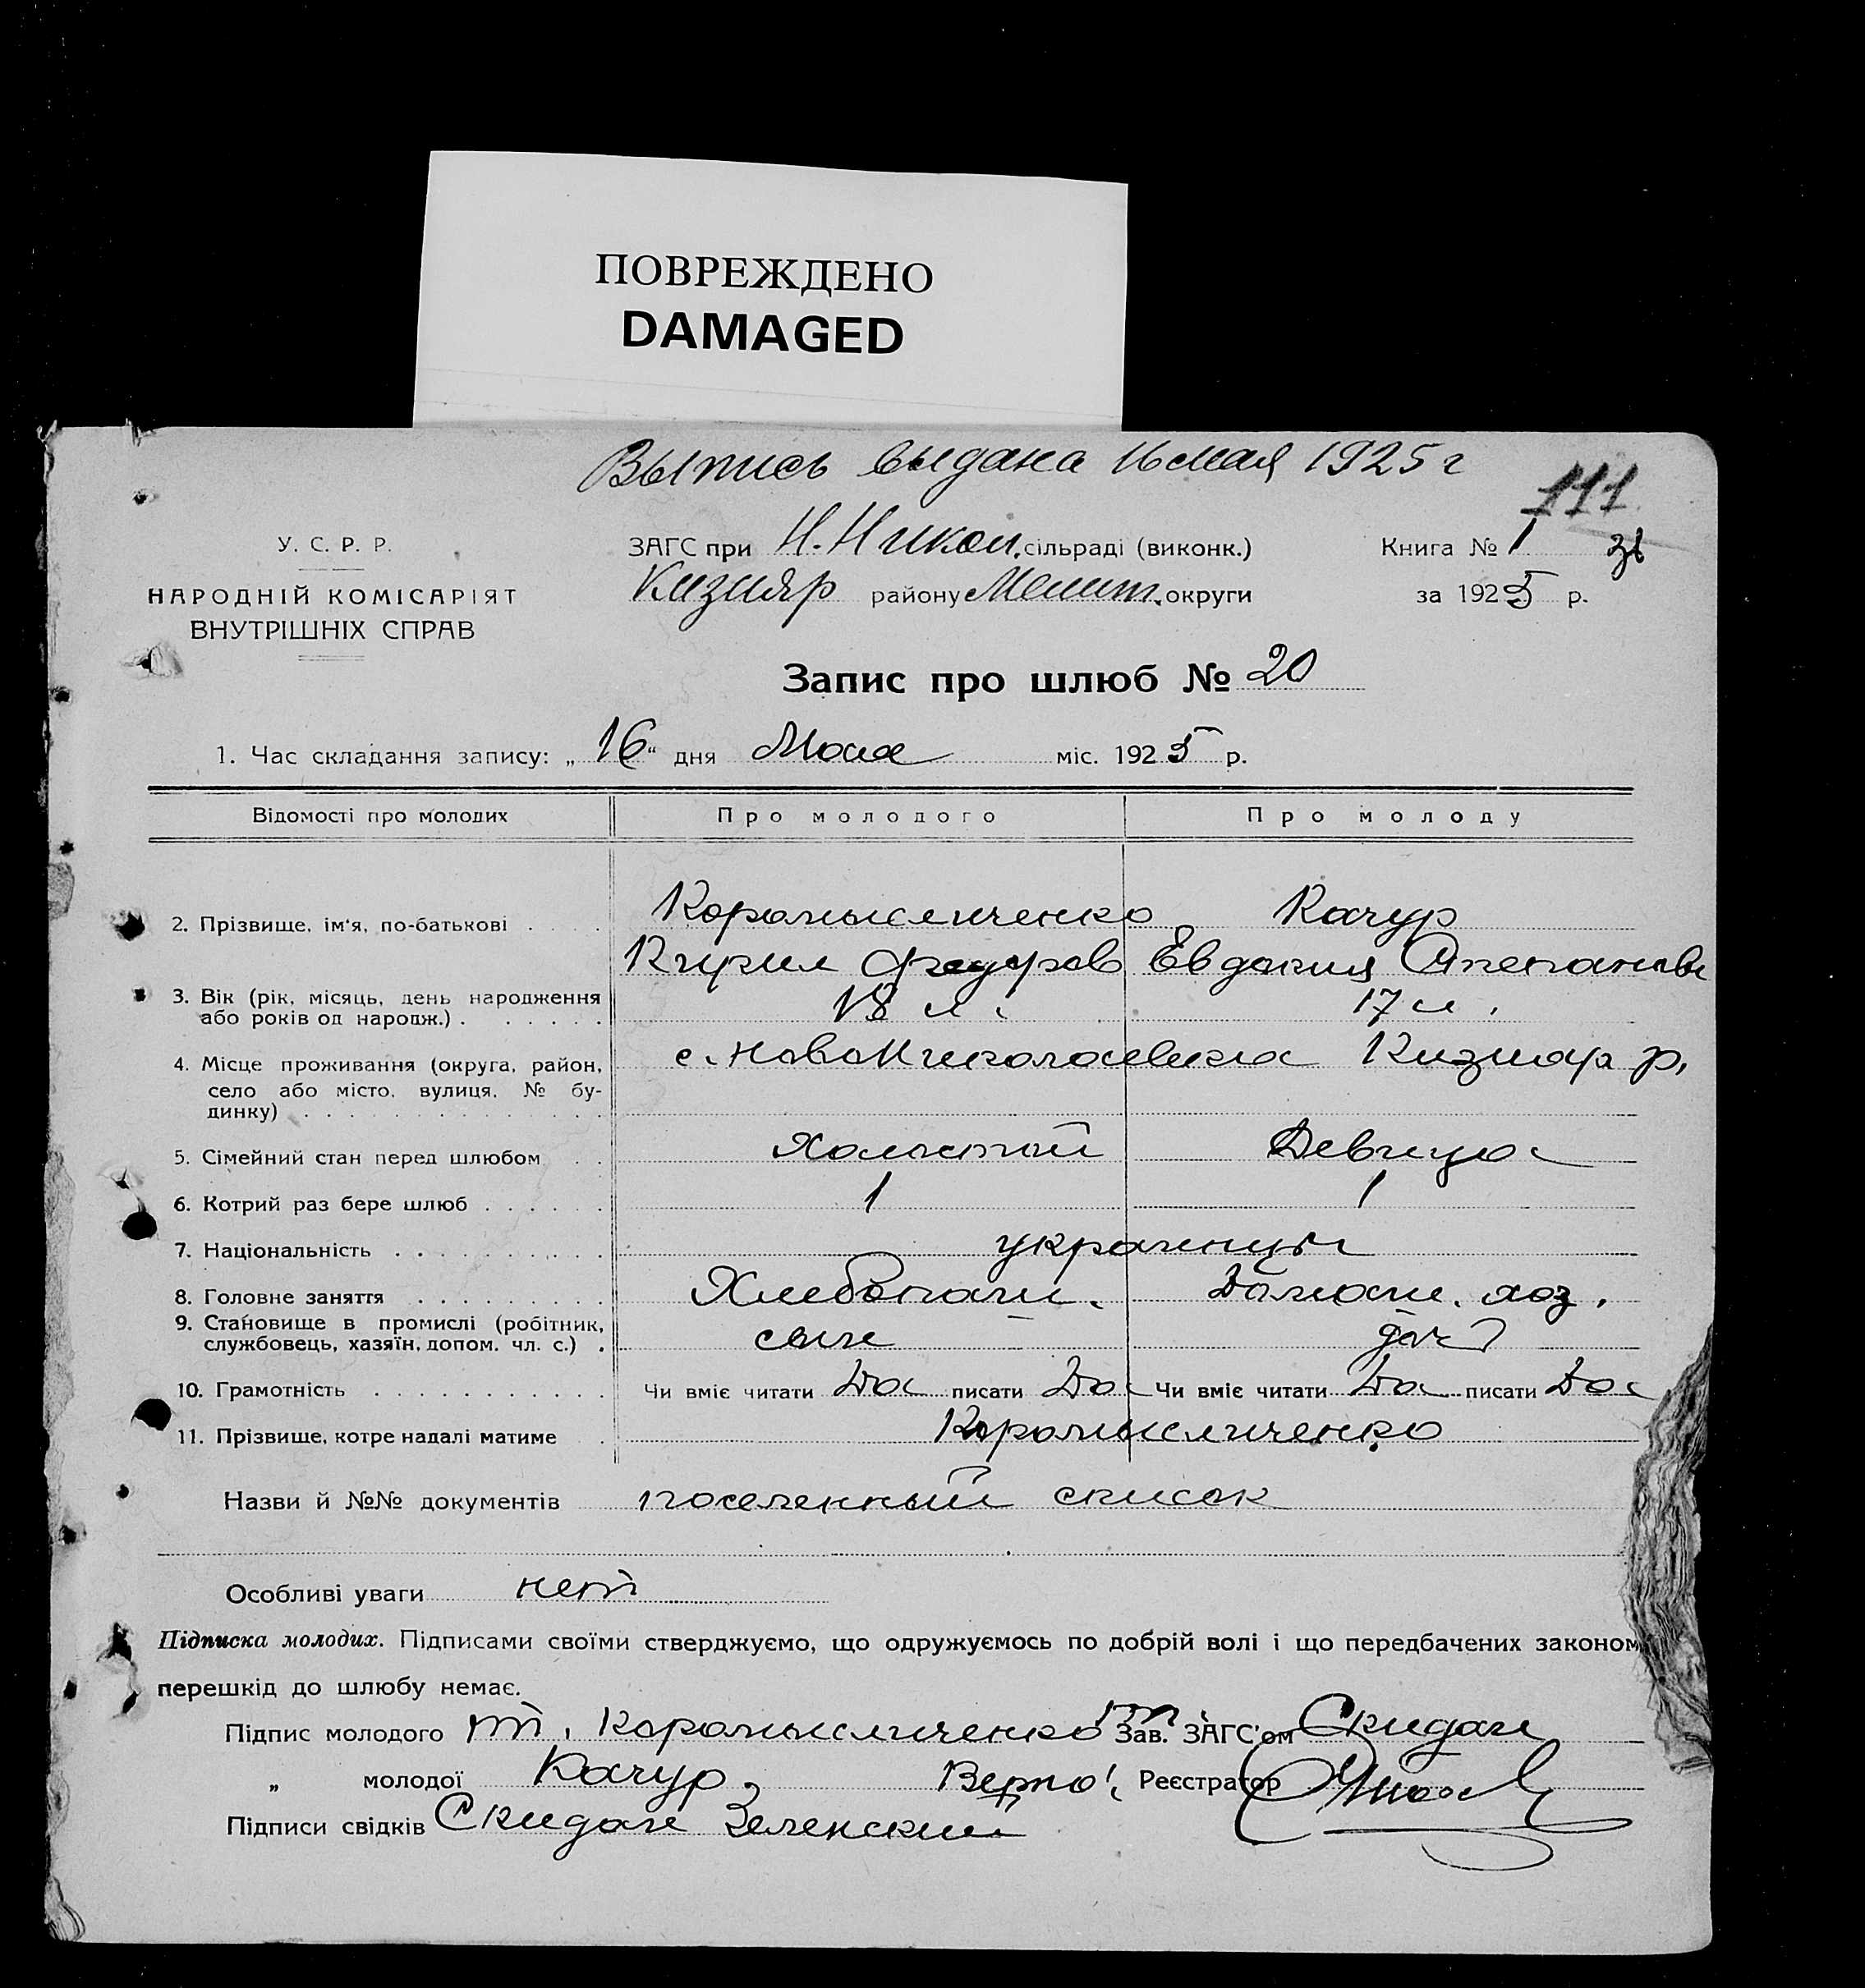 ПОВРЕЖДЕНО
DAMAGED
Выпись выдана 16 мая 1925 г
111
У. С. Р. Р.
НАРОДНІЙ КОМІСАРІЯТ
ВНУТРІШНІХ СПРАВ
ЗАГС при Н. Никол. сільраді (виконк.)
Кизияр району Мелит. округи
Книга № 1
за 1925 р.
Запис про шлюб № 20
1. Час складання запису: „ 16 “ дня Мая міс. 1925 р.
Відомості про молодих Про молодого Про молоду
2. Прізвище, ім'я, по-батькові . . . . Коромысличенко Качур
Кирил Федоров Евдокия Степановн
3. Вік (рік, місяць, день народження
або років од народж.) . . . . . . 18 л. 17 л.
4. Місце проживання (округа, район, с. Ново Николаевка Кизияр р.
село або місто, вулиця, № бу-
динку) . . . . . . . . . . . . .
5. Сімейний стан перед шлюбом . . Холостой Девица
6. Котрий раз бере шлюб . . . . . . 1 1
7. Національність . . . . . . . . . . украинцы
8. Головне заняття . . . . . . . . . Хлебопаш. Домашн. хоз.
9. Становище в промислі (робітник,
службовець, хазяїн, допом. чл. с.) . сын доч
10. Грамотність . . . . . . . . . . . Чи вміє читати Да писати Да Чи вміє читати Да писати Да
11. Прізвище, котре надалі матиме . Коромысличенко
Назви й №№ документів поселенный список
Особливі уваги нет
Підписка молодих. Підписами своїми стверджуємо, що одружуємось по добрій волі і що передбачених законом
перешкід до шлюбу немає.
Підпис молодого т. Коромысличенко Зав. ЗАГС'ом Скидан
„ молодої Качур, Верно: Реєстратор
Підписи свідків Скидан Зеленский